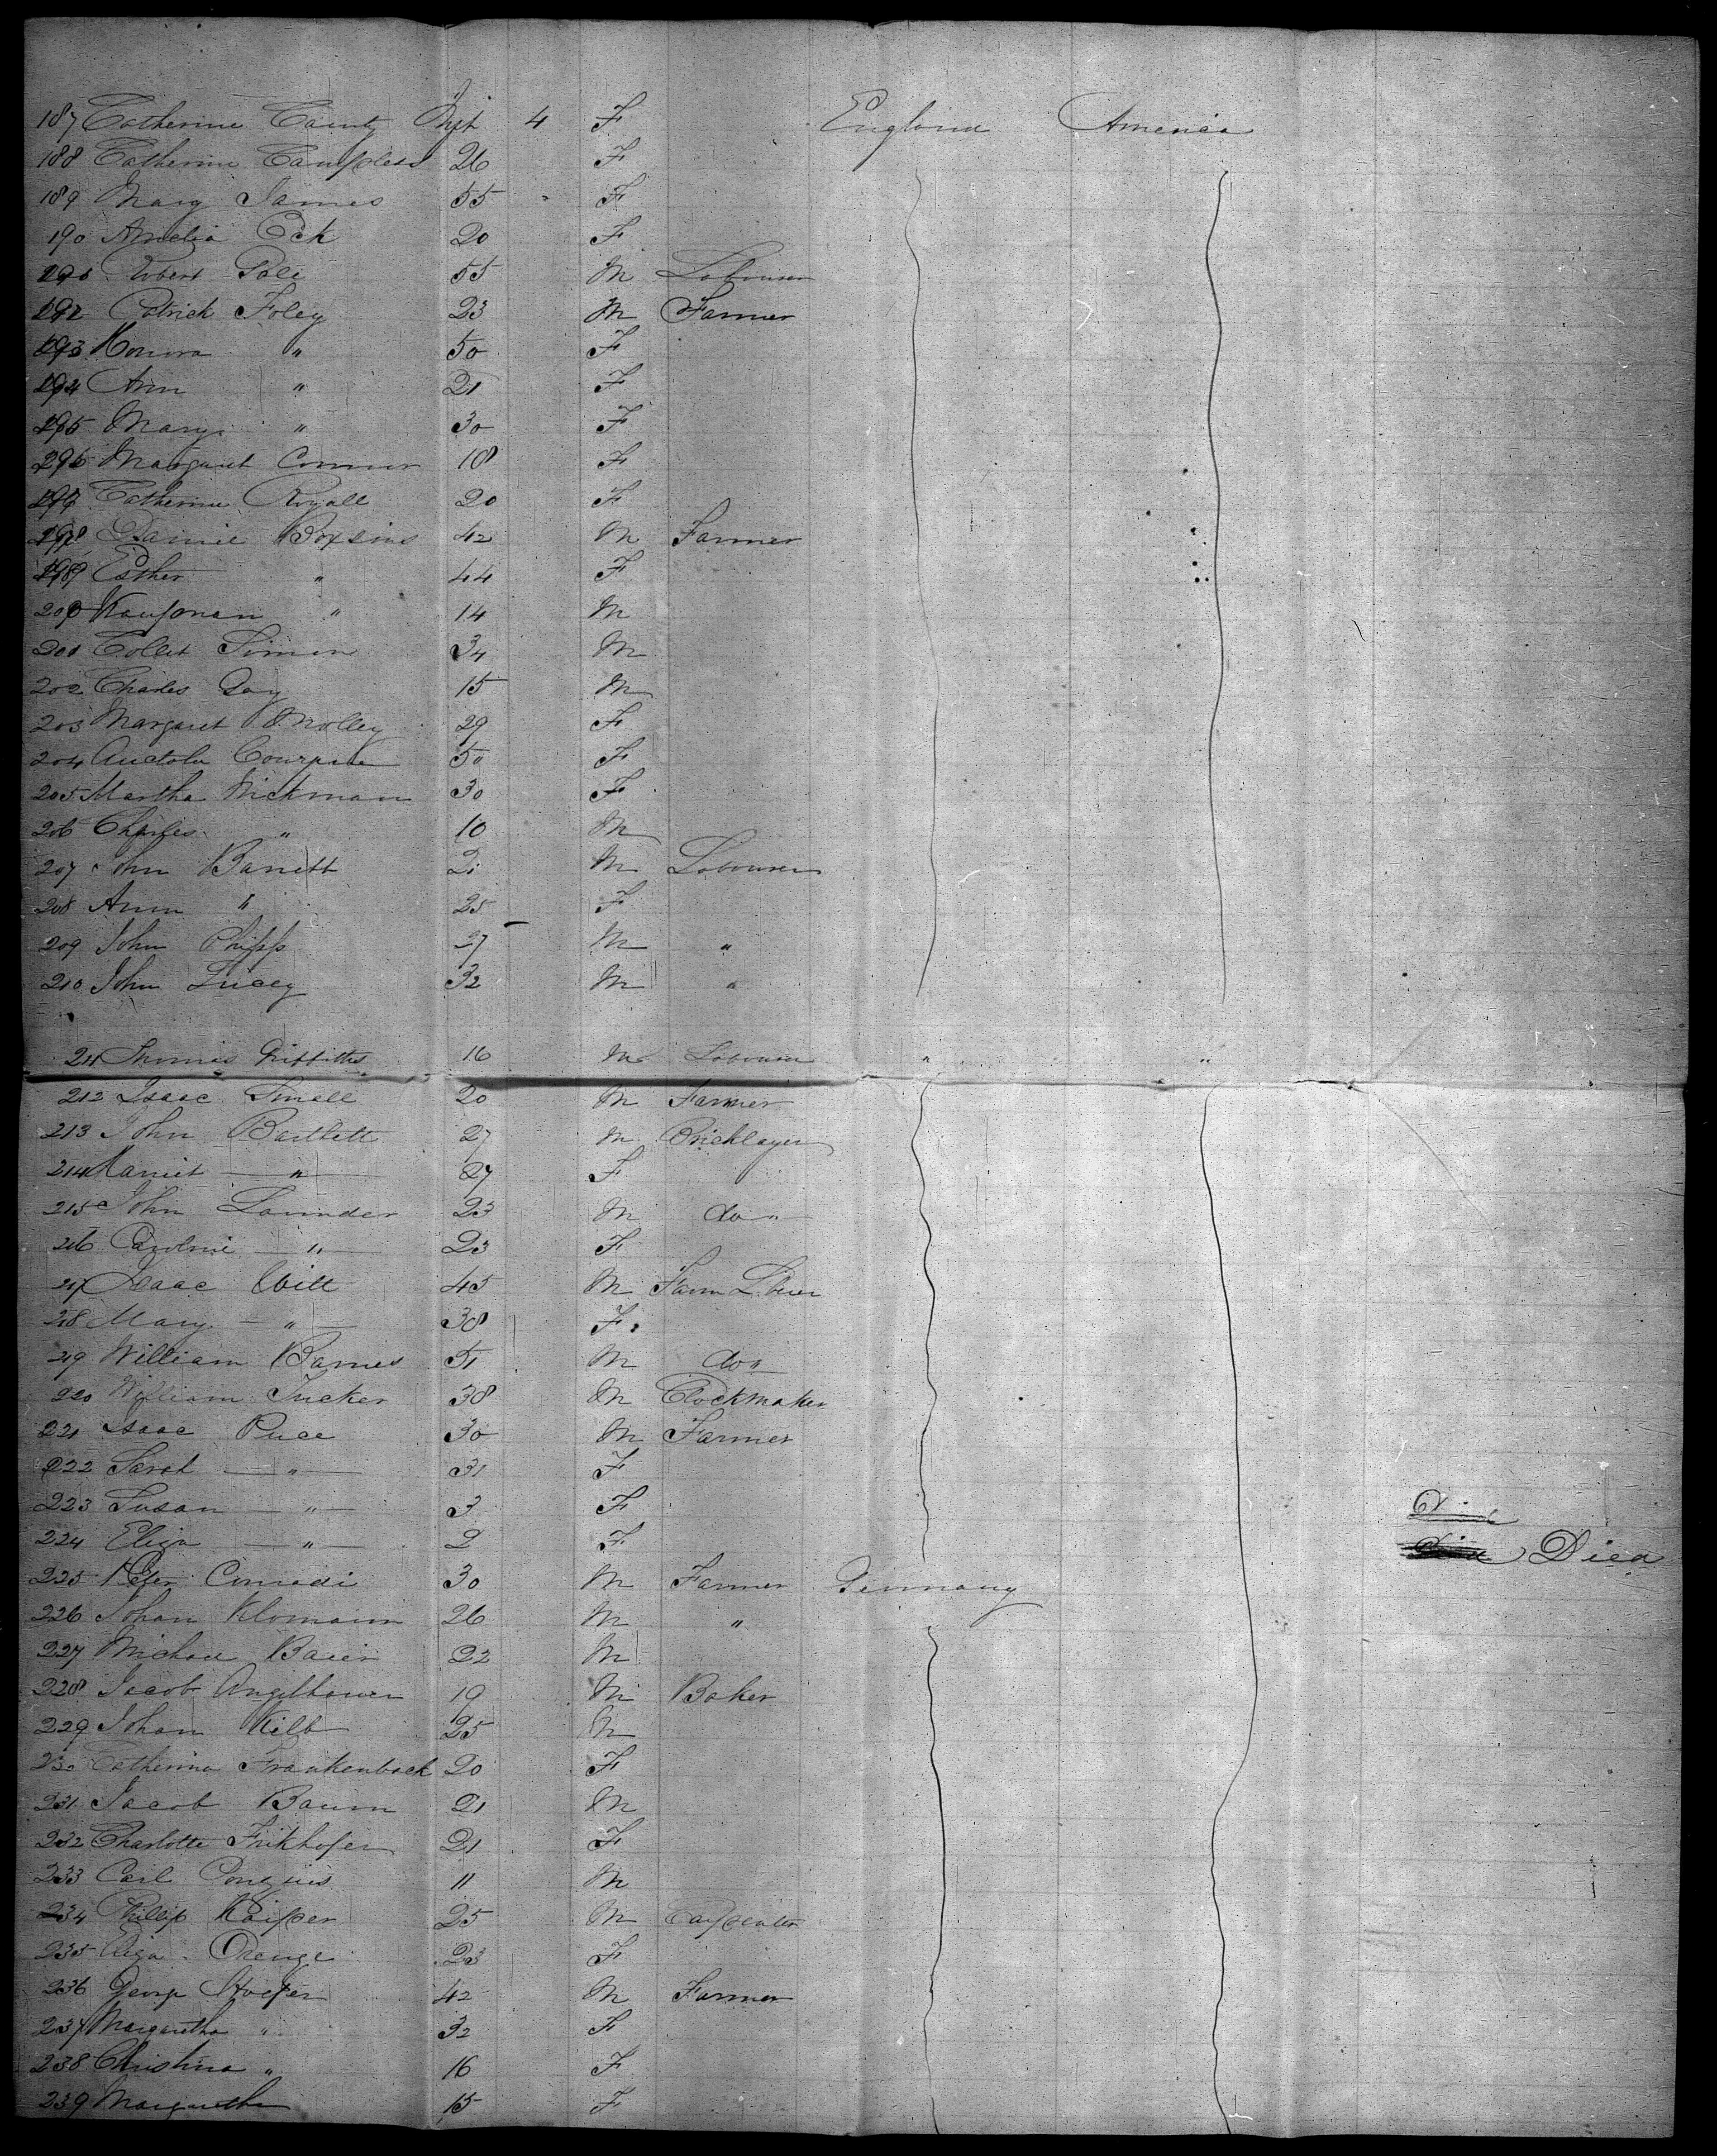 187 Catherine Canty Inft 4 F England America
188 Catherine 26 F
189 Mary James 55 " F
190 Amelia Eck 20 F
191 Robert Pole 55 M Labourer
192 Patrick Foley 23 M Farmer
193 Honora " 50 F
194 Ann " 21 F
195 Mary " 30 F
196 Margaret Connor 18 F
197 Catherine Royall 20 F
198 42 M Farmer
199 Esther " 44 F
200 Kaufman " 14 M
201 Collet Simon 34 M
202 Charles Day 15 M
203 Margaret 29 F
204 50 F
205 Martha Wickman 30 F
206 Charles " 10 M
207 John Barrett 21 M Labourer
208 Ann " 25 F
209 John Phipps 27 M "
210 John Lucey 32 M "
211 Thomas Griffiths 16 M Labourer " "
212 Isaac Small 20 M Farmer
213 John Bartlett 27 M Bricklayer
214 Harriet " 27 F
215 John Launder 23 M do "
216 Caroline " 23 F
217 Isaac Will 45 M Farm
218 Mary " 38 F
219 William Barnes 51 M do "
220 William Tucker 38 M Clockmaker
221 Isaac 30 M Farmer
222 Sarah " 31 F
223 Susan " 3 F
224 Eliza " 2 F Died
225 Peter Conradi 30 M Farmer Germany
226 Johan Klomann 26 M "
227 Michael Baier 22 M
228 Jacob 19 M Baker
229 Johan Kilb 25 M
230 Catherina Frankenbach 20 F
231 Jacob Baum 21 M
232 Charlotte Frikhofer 21 F
233 Carl 11 M
234 Phillip 25 M Carpenter
235 Eliza 23 F
236 George 42 M Farmer
237 Margaretha " 32 F
238 Christina " 16 F
239 Margaretha 15 F